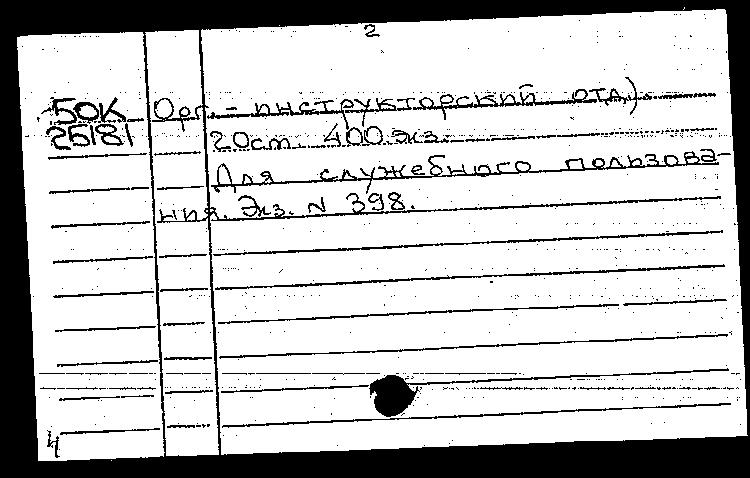 2
50К Орг.-инструкторский отд).
25181 20см. 400.экз.
Для служебного пользова-
ния. Экз. N 398.
4